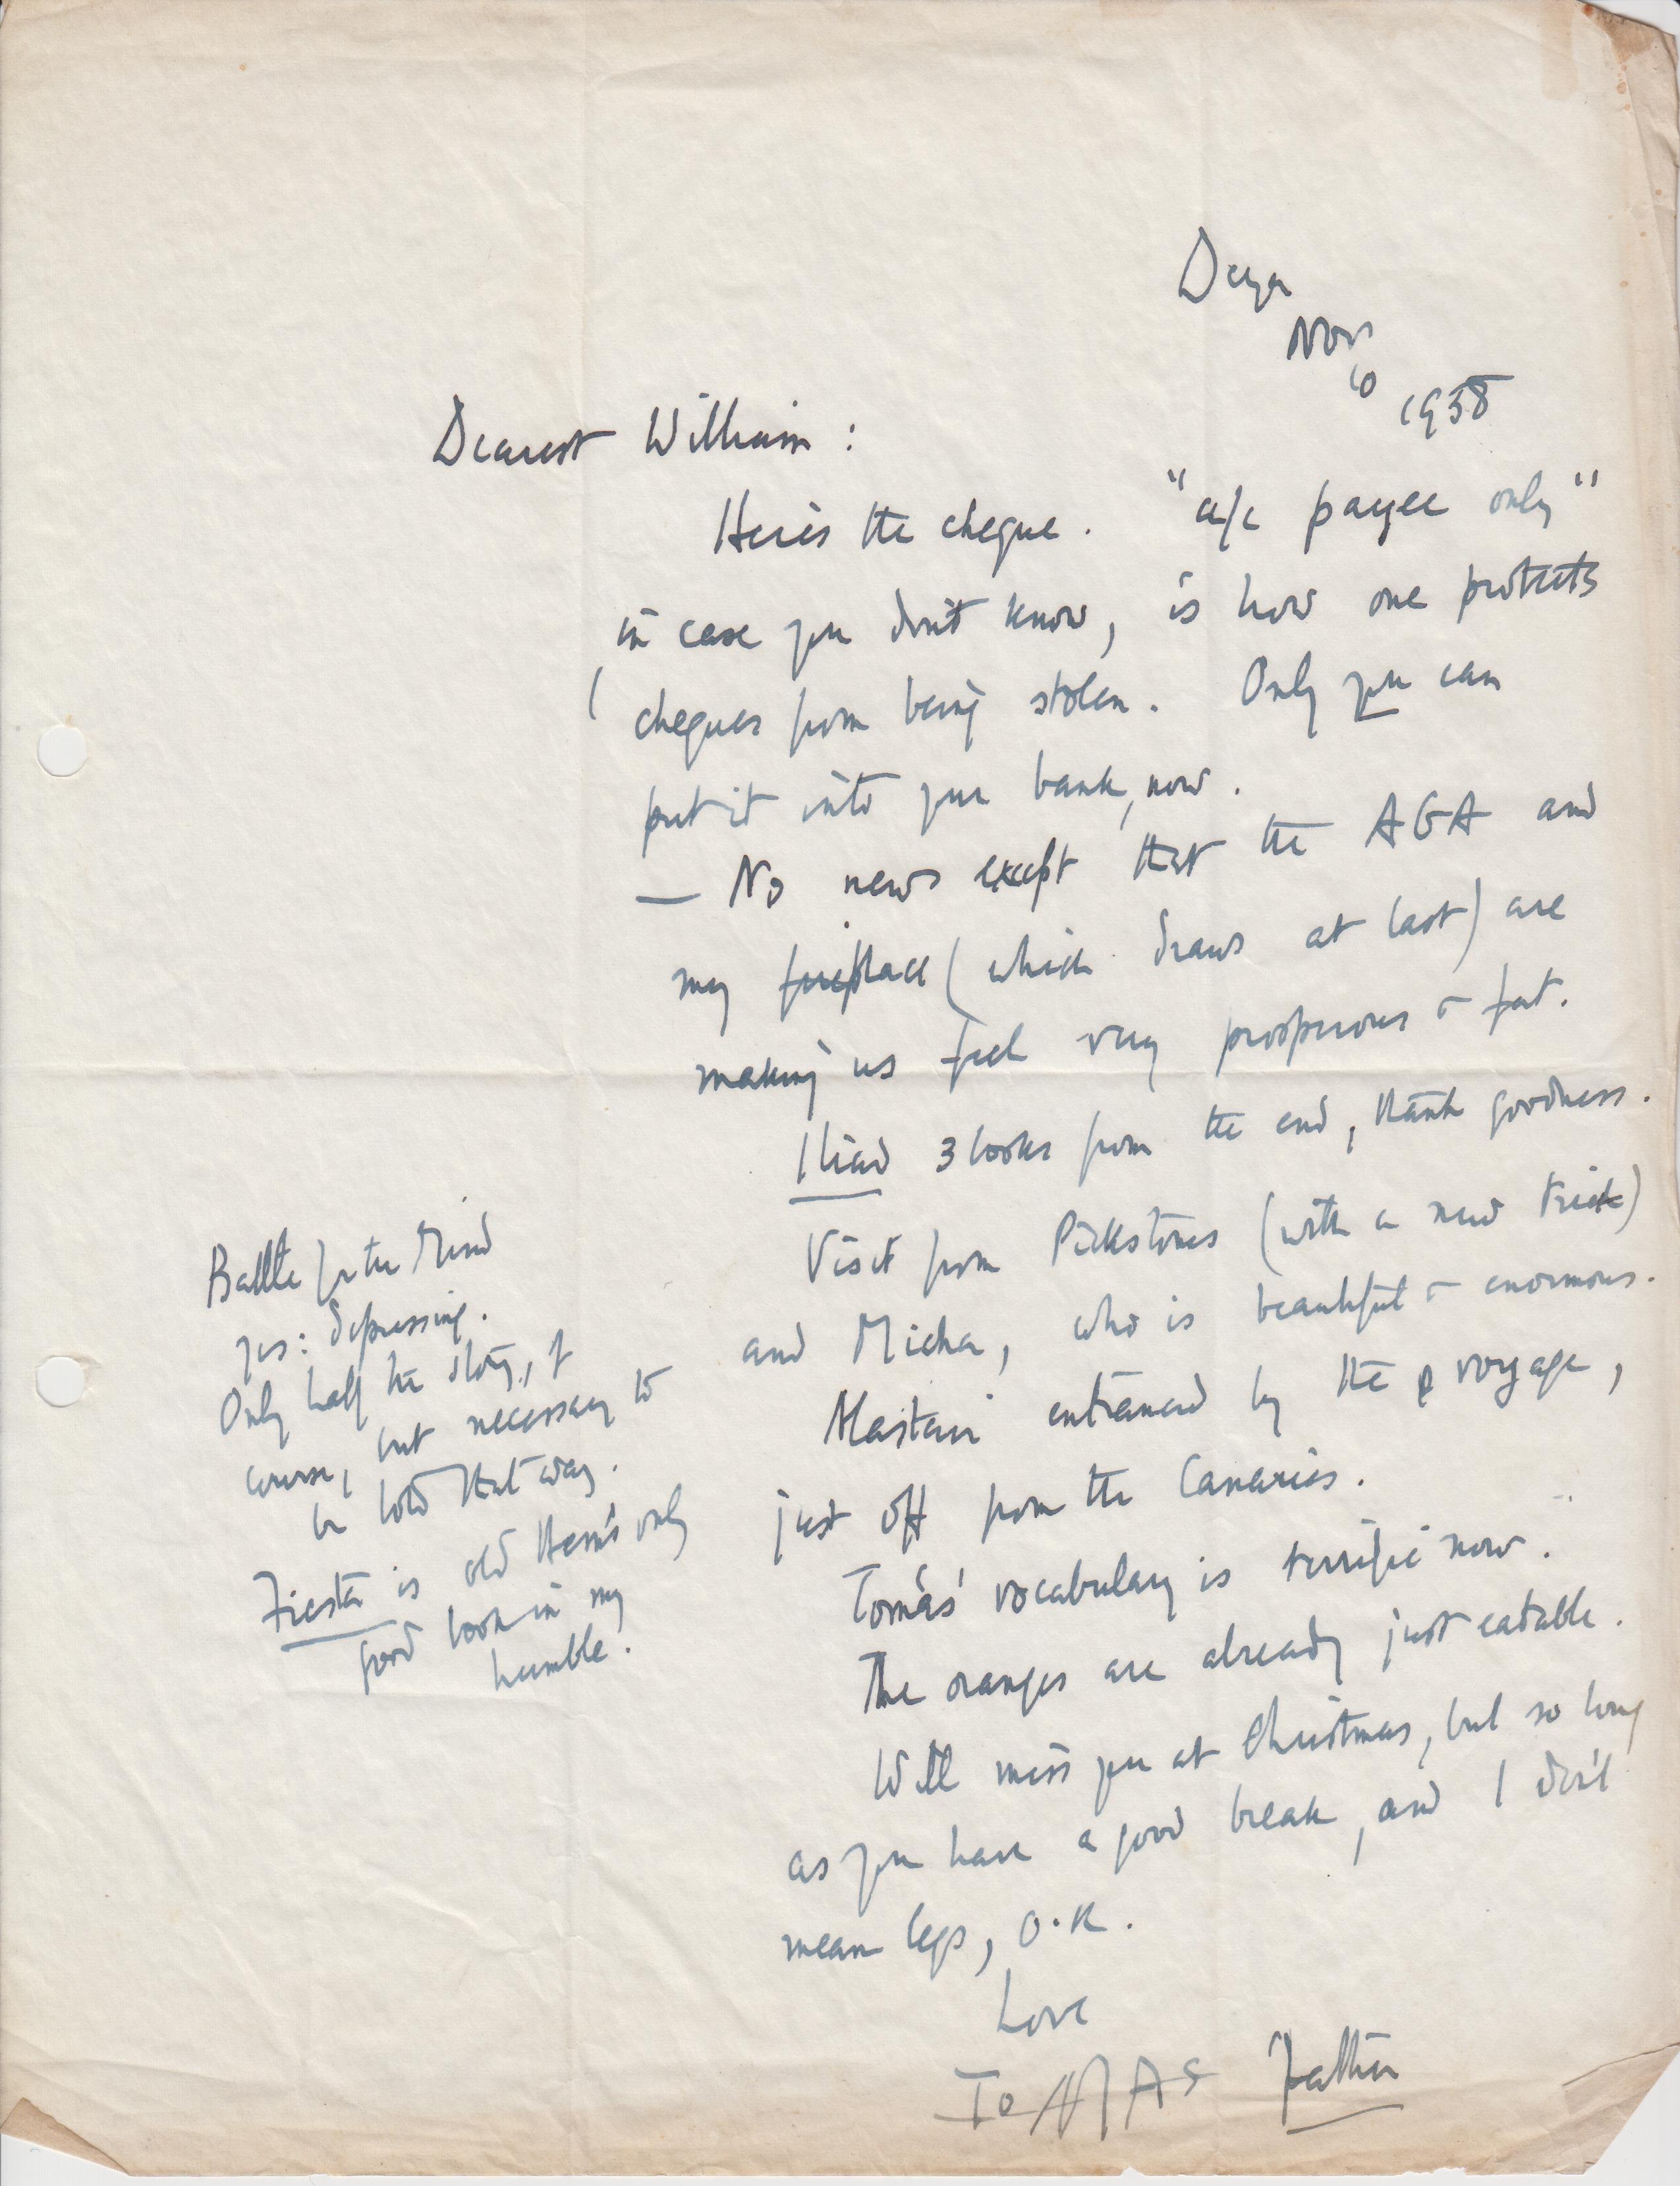 Deya
Nov
10
1958
Dearest William :
Here's the cheque. "a/c payee only"
in case you don't know, is how one protects
cheques from being stolen. Only you can
put it into your bank, now.
— No news except that the AGA and
my fireplace (which draws at last) are
making us feel very prosperous & fat.
Iliad 3 books from the end, thank goodness.
Visit from Pickstones (with a new trick)
and Micha, who is beautiful & enormous.
Alastair entranced by the voyage,
just off from the Canaries.
Tomás' vocabulary is terrific now.
The oranges are already just eatable.
Will miss you at Christmas, but so long
as you have a good break, and I don't
mean legs, O.K.
Love
ToMAS Father
Battle for the Mind
yes: depressing.
Only half the story, of
course, but necessary to
be told that way.
Fiesta is old Hem's only
good book in my
humble.